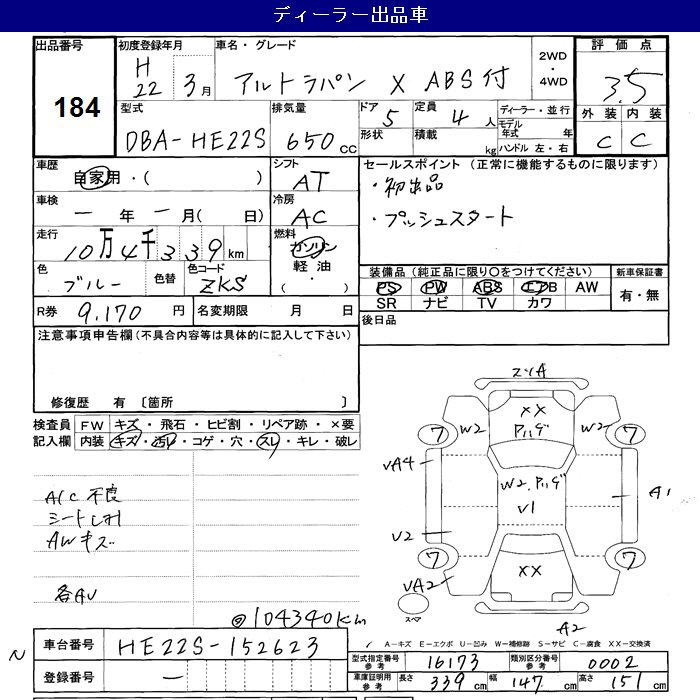 ディーラー出品車
出品番号
184
初度登録年月
H
22 3月
車名・グレード
アルトラパン X ABS付
2WD
・
4WD
評価点
3.5
外装 内装
C C
型式
DBA-HE22S
排気量
650cc
ドア
5
形状
定員
4人
積載
kg
ディーラー・並行
モデル
年式 年
ハンドル 左・右
車歴
自家用・( )
車検
一年一月( 日)
走行
10万4千339km
色
ブルー
色替
色コード
ZKS
シフト
AT
冷房
AC
燃料
ガソリン
軽油
( ・ )
セールスポイント(正常に機能するものに限ります)
・初出品
・プッシュスタート
装備品(純正品に限り○をつけてください)
PS PW ABS エアB AW
SR ナビ TV カワ
新車保証書
有・無
後日品
R券 9,170円
名変期限 月 日
注意事項申告欄(不具合内容等は具体的に記入して下さい)
修復歴 有 〔箇所 〕
検査員
記入欄
FW キズ・飛石・ヒビ割・リペア跡・×要
内装 キズ・汚レ・コゲ・穴・スレ・キレ・破レ
A/C 不良
AWキズ
各AU
◎104340km
XX
7 W2 W2 7
VA4
V1
A1
V2
7 7
VA2
XX
スペア
A2
A－キズ E－エクボ U－凹み W－補修跡 S－サビ C－腐食 XX－交換済
N
車台番号 HE22S-152623
登録番号 一
型式指定番号
参考
16173
類別区分番号
参考
0002
車庫証明用
参考
長さ 339cm 幅 147cm 高さ 151cm